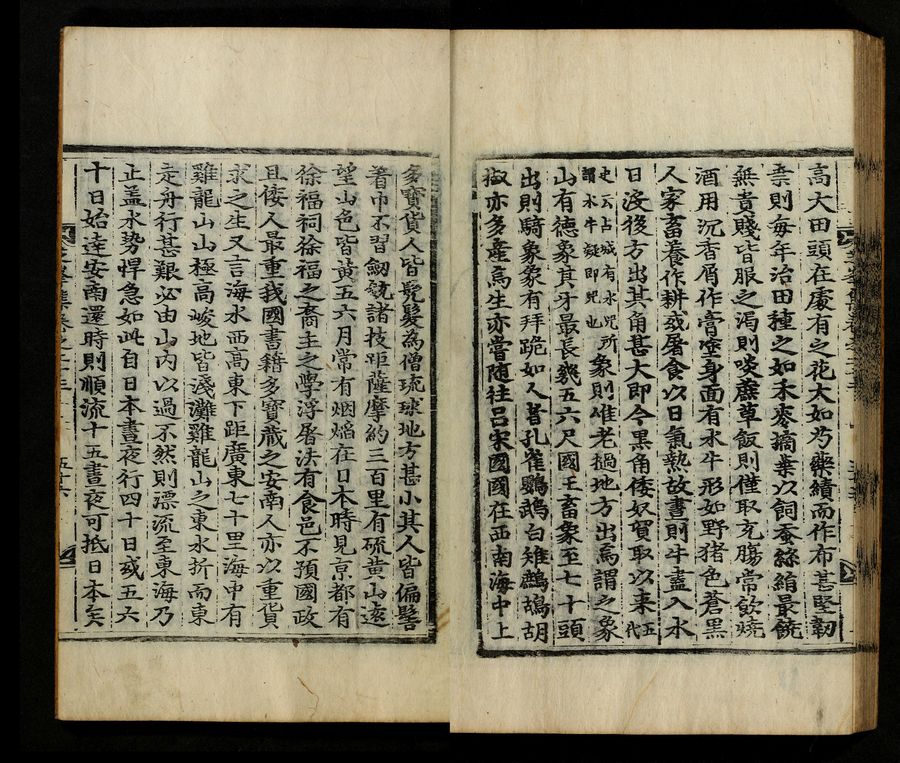 高大田頭在處有之花大如芍藥績而作布甚堅韌
桑則每年治田種之如禾麥摘葉以飼蚕絲絹最饒
無貴賤皆服之渴則啖蔗草飯則僅取充膓常飮燒
酒用沉香屑作膏塗身面有水牛形如野猪色蒼黑
人家畜養作耕或屠食以日氣熱故晝則牛盡入水
日沒後方出其角甚大即今黑角倭奴貿取以来五代
史云占城有水兕所謂水牛疑即兕也象則惟老撾地方出焉謂之象
山有德象其牙最長幾五六尺國王畜象至七十頭
出則騎象象有拜跪如人者孔雀鸚鵡白雉鷓鴣胡
椒亦多產焉生亦嘗隨往呂宋國國在西南海中上
多寶貨人皆髡髮爲僧琉球地方甚小其人皆偏髻
着巾不習劒銃諸技距薩摩約三百里有硫黃山遠
望山色皆黃五六月常有烟焰在日本時見京都有
徐福祠徐福之裔主之學浮屠法有食邑不預國政
且倭人最重我國書籍多寶藏之安南人亦以重貨
求之生又言海水西高東下距廣東七十里海中有
雞龍山山極高峻地皆淺灘雞龍山之東水折而東
走舟行甚艱必由山內以過不然則漂流至東海乃
正盖水勢悍急如此自日本晝夜行四十日或五六
十日始達安南還時則順流十五晝夜可抵日本矣